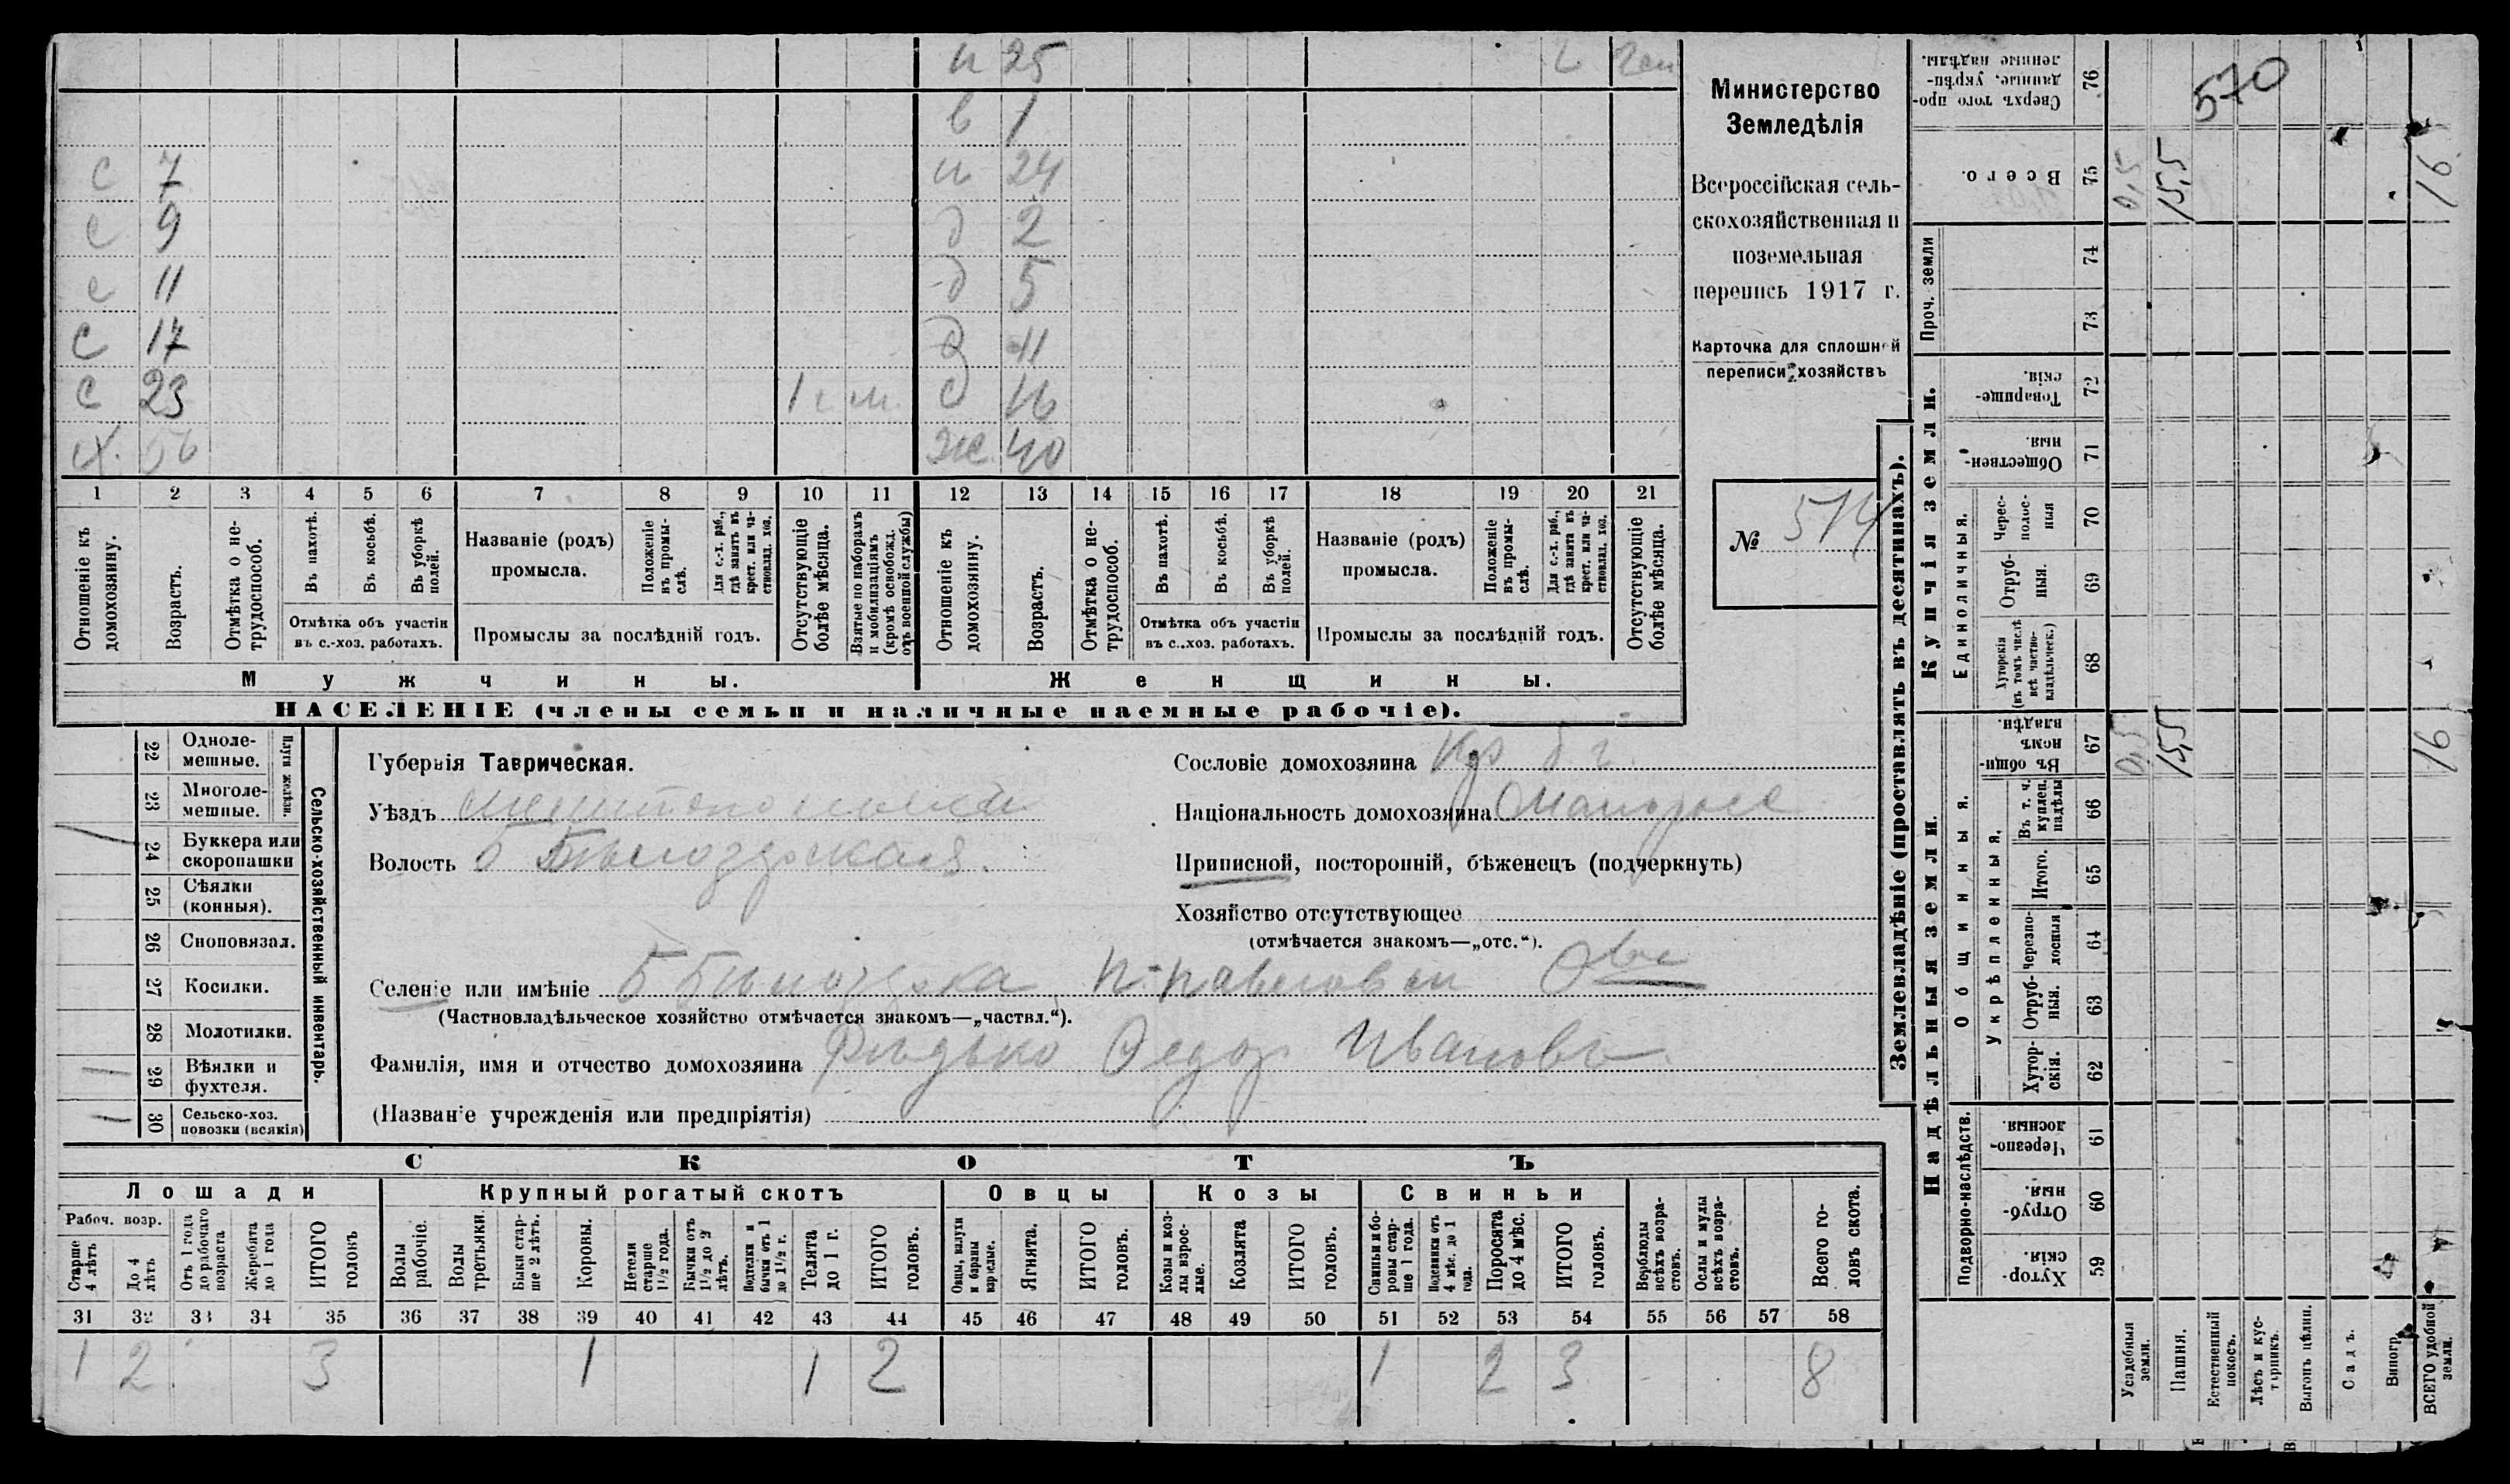 и 25
в 1
с 7 и 24
с 9 д 2
с 11 д 5
с 17 д 11
с 23 д 16
х. 56 ж. 40
1 2 3 4 5 6 7 8 9 10 11 12 13 14 15 16 17 18 19 20 21
Отношеніе къ домохозяину.
Возрастъ.
Отмѣтка о нетрудоспособ.
Въ пахотѣ.
Въ косьбѣ.
Въ уборкѣ полей.
Отмѣтка объ участіи въ с.-хоз. работахъ.
Названіе (родъ) промысла.
Положеніе въ промыслѣ.
Для с.-х. раб., гдѣ занятъ въ крест. или частновлад. хоз.
Промыслы за послѣдній годъ.
Отсутствующіе болѣе мѣсяца.
Взятые по наборамъ и мобилизаціямъ (кромѣ освобожд. отъ военной службы)
Отношеніе къ домохозяину.
Возрастъ.
Отмѣтка о нетрудоспособ.
Въ пахотѣ.
Въ косьбѣ.
Въ уборкѣ полей.
Отмѣтка объ участіи въ с.-хоз. работахъ.
Названіе (родъ) промысла.
Положеніе въ промыслѣ.
Для с.-х. раб., гдѣ занята въ крест. или частновлад. хоз.
Промыслы за послѣдній годъ.
Отсутствующіе болѣе мѣсяца.
Мужчины. Женщины.
НАСЕЛЕНІЕ (члены семьи и наличные наемные рабочіе).
Министерство
Земледѣлія
Всероссійская сель-
скохозяйственная и
поземельная
перепись 1917 г.
Карточка для сплошной
переписи хозяйствъ
№ 514
22 Одноле-
мешные.
23 Многоле-
мешные.
Плуги желѣзн.
24 Буккера или
скоропашки
25 Сѣялки
(конныя).
26 Сноповязал.
27 Косилки.
28 Молотилки.
29 Вѣялки и
фухтеля.
30 Сельско-хоз.
повозки (всякія)
Сельско-хозяйственный инвентарь.
Губернія Таврическая.
Уѣздъ Мелитопольскій
Волость Б Бѣлозерская.
Сословіе домохозяина Кр б г.
Національность домохозяина Малорос
Приписной, посторонній, бѣженецъ (подчеркнуть)
Хозяйство отсутствующее
(отмѣчается знакомъ—„отс.“).
Селеніе или имѣніе Б Бѣлозерка
(Частновладѣльческое хозяйство отмѣчается знакомъ—„частвл.“).
Фамилія, имя и отчество домохозяина Рѣдько Федор Ивановъ
(Названіе учрежденія или предпріятія)
СКОТЪ
Лошади Крупный рогатый скотъ Овцы Козы Свиньи
Рабоч. возр.
Старше 4 лѣтъ
До 4 лѣтъ
Отъ 1 года до рабочаго возраста
Жеребята до 1 года
ИТОГО головъ
Волы рабочіе.
Волы третьяки.
Быки старше 2 лѣтъ.
Коровы.
Нетели старше 1½ года.
Бычки отъ 1½ до 2 лѣтъ.
Подтелки и бычки отъ 1 до 1½ г.
Телята до 1 г.
ИТОГО головъ.
Овцы, валухи и бараны взрослые.
Ягнята.
ИТОГО головъ.
Козы и козлы взрослые.
Козлята
ИТОГО головъ.
Свиньи и боровы старше 1 года.
Подсвинки отъ 4 мѣс. до 1 года.
Поросята до 4 мѣс.
ИТОГО головъ.
Верблюды всѣхъ возрастовъ.
Ослы и мулы всѣхъ возрастовъ.
Всего головъ скота.
31 32 33 34 35 36 37 38 39 40 41 42 43 44 45 46 47 48 49 50 51 52 53 54 55 56 57 58
1 2 3 1 1 2 1 2 3 8
Землевладѣніе (проставлять въ десятинахъ).
Купчія земли.
Надѣльныя земли.
Сверхъ того проданные, укрѣпленные надѣлы. 76
Всего. 75
Проч. земли 74 73
Товарищескія. 72
Общественныя. 71
Единоличныя.
Чересполосныя 70
Отрубныя. 69
Хуторскія (въ томъ числѣ всѣ частновладѣльческ.) 68
Общинныя.
Въ общинномъ владѣн. 67
Укрѣпленныя.
Въ т. ч. куплен. надѣлы 66
Итого. 65
Черезполосныя 64
Отрубныя. 63
Хуторскія. 62
Подворно-наслѣдств.
Черезполосныя. 61
Отрубныя. 60
Хуторскія. 59
570
0,5 15,5 16
0,5 15,5 16
Усадебныя земли.
Пашня.
Естественный покосъ.
Лѣсъ и кустарникъ.
Выгонъ цѣлин.
Садъ.
Виногр.
ВСЕГО удобной земли.